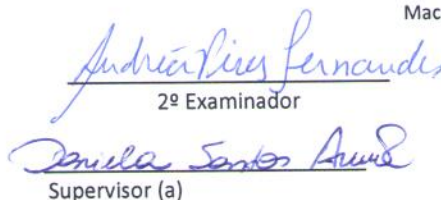 Mac
Andréa Pires Fernandes
2º Examinador
Daniela Santos
Supervisor (a)